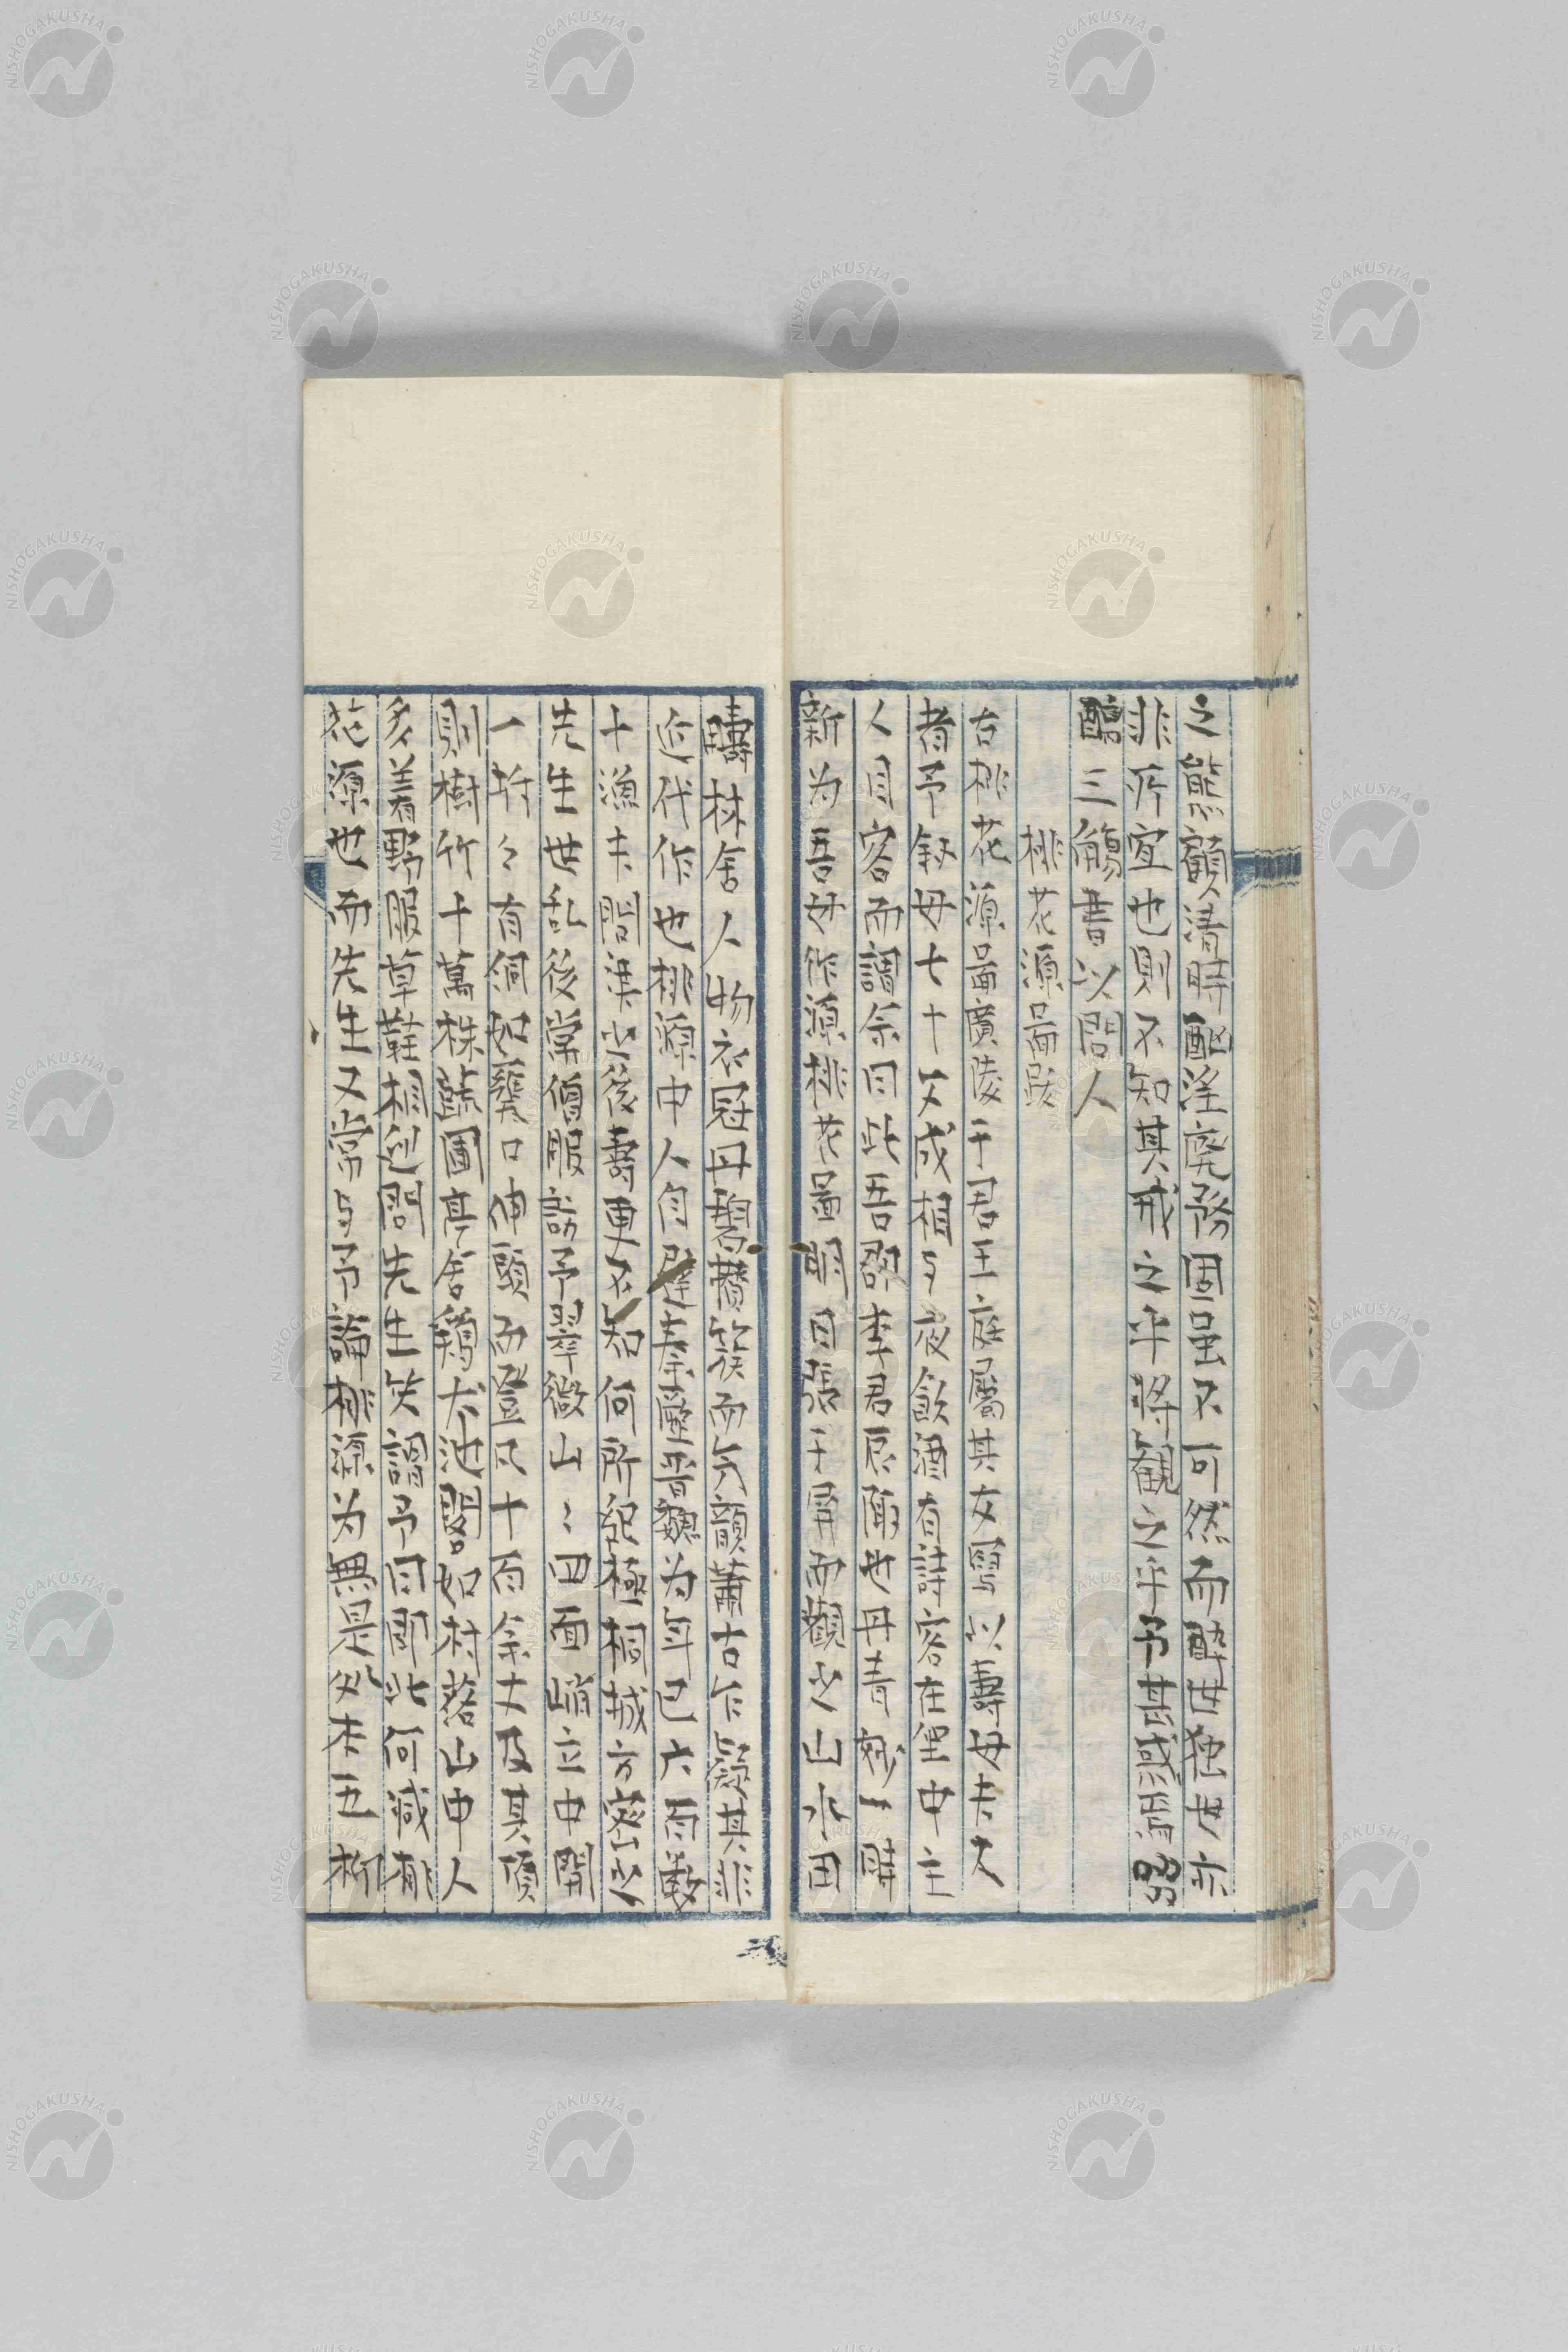 之態顧清時酗淫廃務固虽不可然而酔世独世亦
非所宜也則不知其戒之乎将観之乎予甚惑焉罰
酹三觴書以問人
桃花源啚跋
右桃花源啚廣陵王君玉庭屬其友写以壽母夫人
者予叙母七十文成相与夜飲酒有詩客在里中主
人目客而謂余曰此吾郡李君辰陽也丹青妙一時
新为吾母作源桃花啚明日張于屏而觀之山水田
疇林舍人物衣冠丹碧攅簇而气韻蕭古乍疑其非
近代作也桃源中人自避秦歴晋魏为年已六百数
十漁夫問津之後壽更不知何所紀極桐城方密之
先生世乱後常僧服訪予翠微山〻四面峭立中開
一坼々有洞如甕口伸頭而登凡十百余丈及其頂
則樹竹十萬株蔬圃亭舍鶏犬池閣如村落山中人
多着野服草鞋相迎問先生笑謂予曰即此何减桃
花源也而先生又常与予論桃源为無是処夫五柳